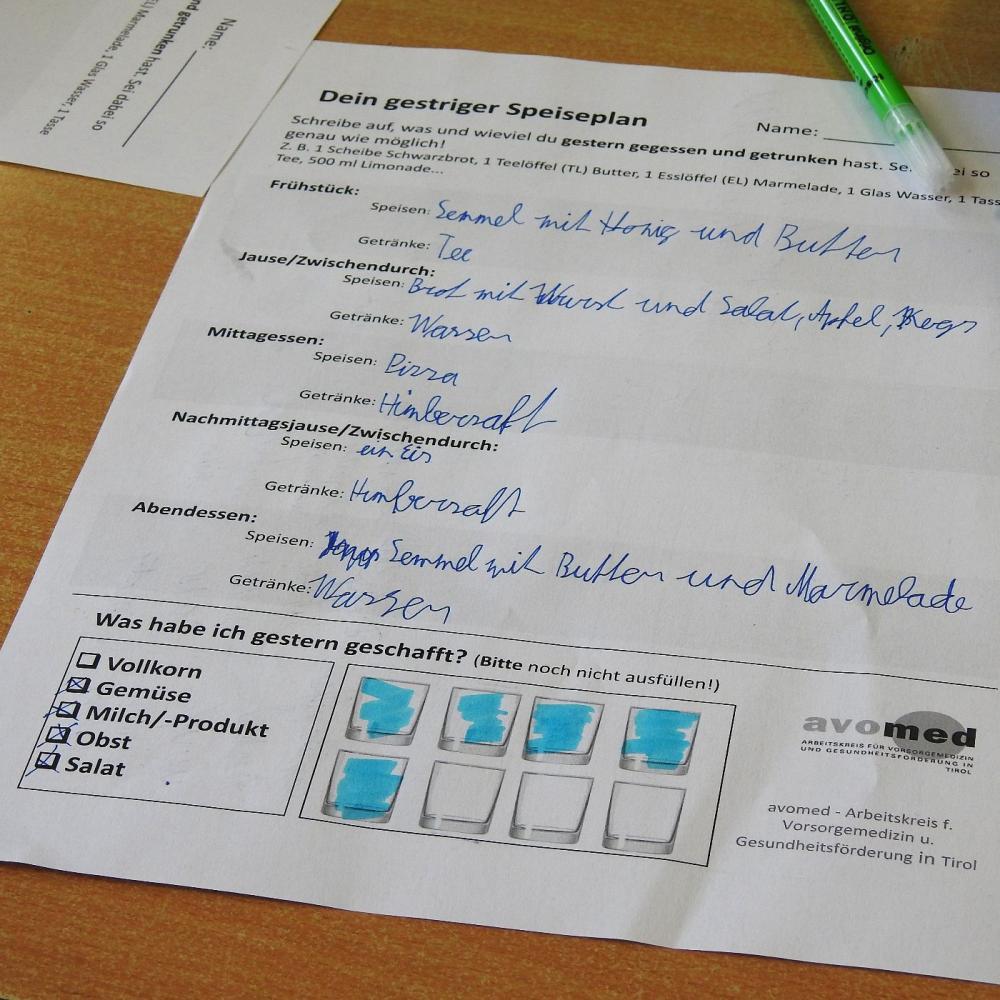 Name:
nd getrunken hast. Sei dabei so
EL) Marmelade, 1 Glas Wasser, 1 Tasse
Dein gestriger Speiseplan
Name:
Schreibe auf, was und wieviel du gestern gegessen und getrunken hast. Se ei so
genau wie möglich!
Z. B. 1 Scheibe Schwarzbrot, 1 Teelöffel (TL) Butter, 1 Esslöffel (EL) Marmelade, 1 Glas Wasser, 1 Tass
Tee, 500 ml Limonade...
Frühstück:
Speisen: Semmel mit Honig und Butter
Getränke: Tee
Jause/Zwischendurch:
Speisen: Brot mit Wurst und Salat, Apfel,
Getränke: Wasser
Mittagessen:
Speisen: Pizza
Getränke: Himbersaft
Nachmittagsjause/Zwischendurch:
Speisen: ein Eis
Getränke: Himbersaft
Abendessen:
Speisen: Semmel mit Butter und Marmelade
Getränke: Wasser
Was habe ich gestern geschafft? (Bitte noch nicht ausfüllen!)
Vollkorn
Gemüse
Milch/-Produkt
Obst
Salat
avomed
ARBEITSKREIS FÜR VORSORGEMEDIZIN
UND GESUNDHEITSFÖRDERUNG IN
TIROL
avomed - Arbeitskreis f.
Vorsorgemedizin u.
Gesundheitsförderung in Tirol